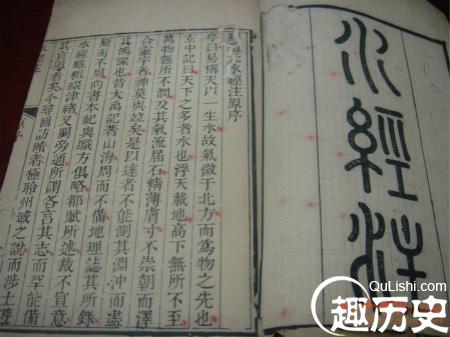 水經注
酈道元水經注原序
序曰易稱天以一生水故氣微于北方而爲物之先也
玄中記曰天下之多者水也浮天載地高下無所不至
萬物無所不潤及其氣流屆石精薄膚寸不崇朝而澤
合靈宇者神莫與竝矣是以達者不能測其淵沖而盡
其鴻深也昔大禹記著山海周而不備地理誌其所錄
簡而不周尚書本紀與職方俱略都賦所述裁不宣意
水經雖粗綴津緒又闕旁通所謂各言其志而罕能備
其宣導者矣今尋圖訪賾者極聆州域之說而涉土遊
QuLiShi.com
趣历史